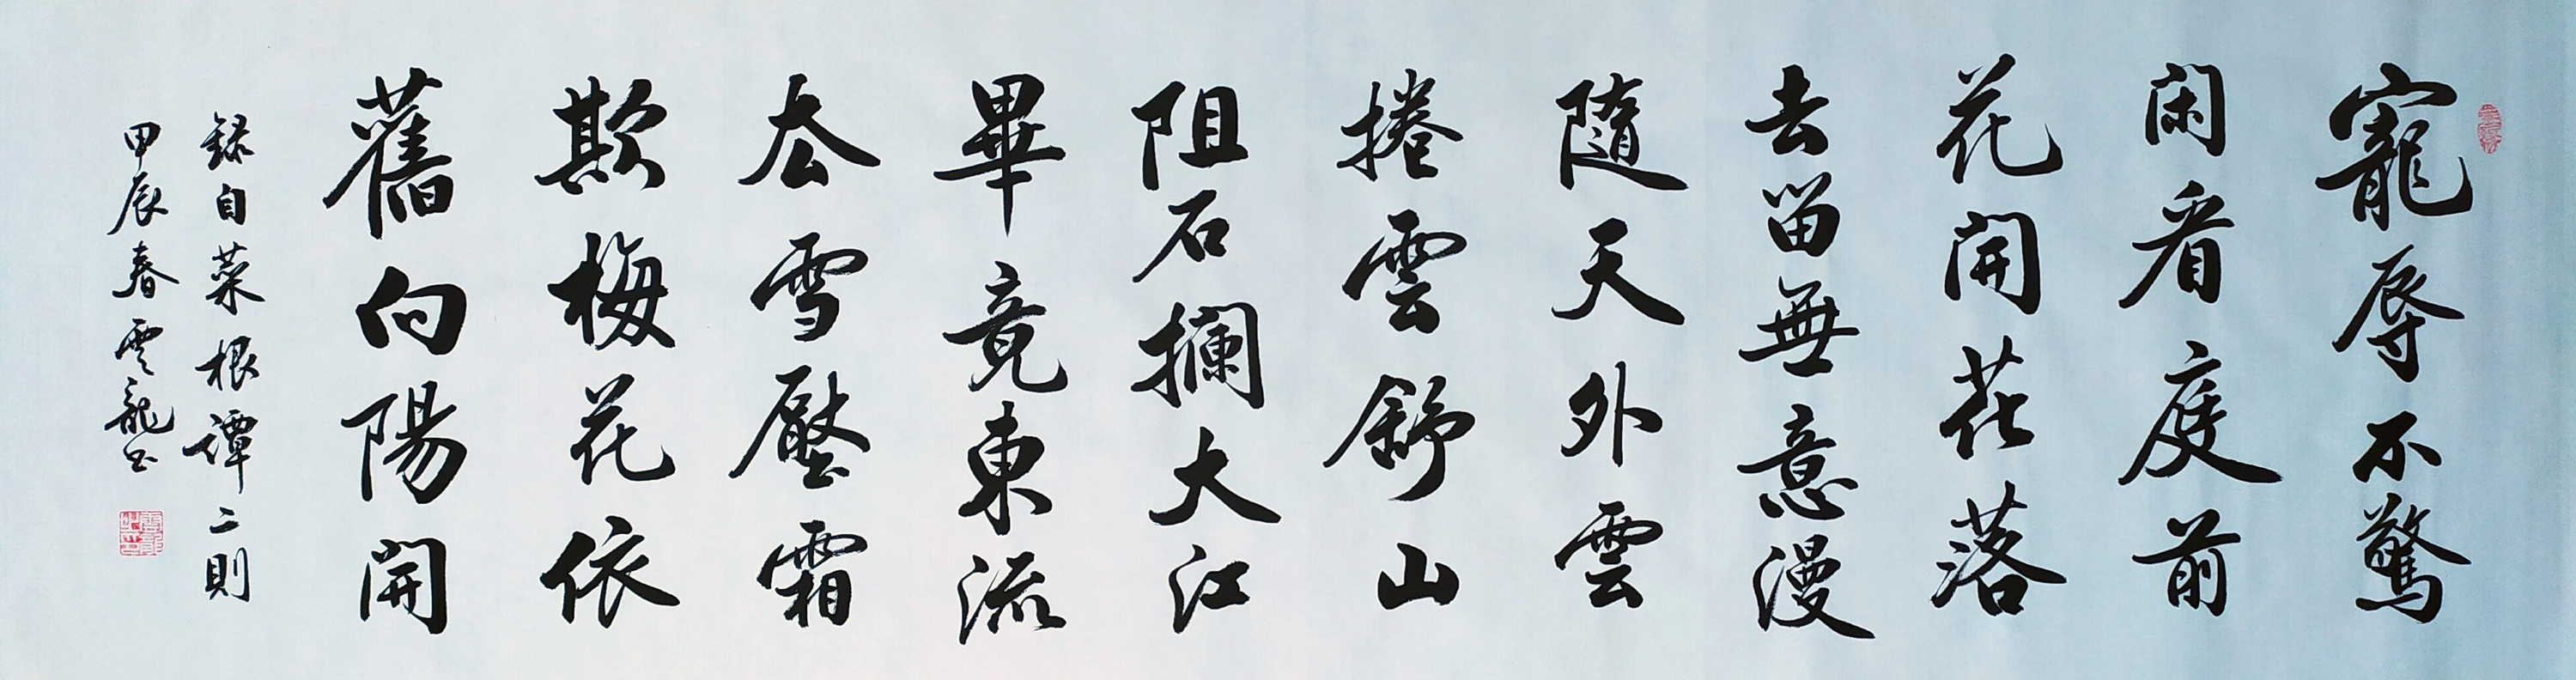 寵辱不驚
閑看庭前
花開花落
去留無意漫
隨天外雲
捲雲舒山
阻石攔大江
畢竟東流
厺雪壓霜
欺梅花依
舊向陽開
錄自菜根譚二則
甲辰春雲龍書